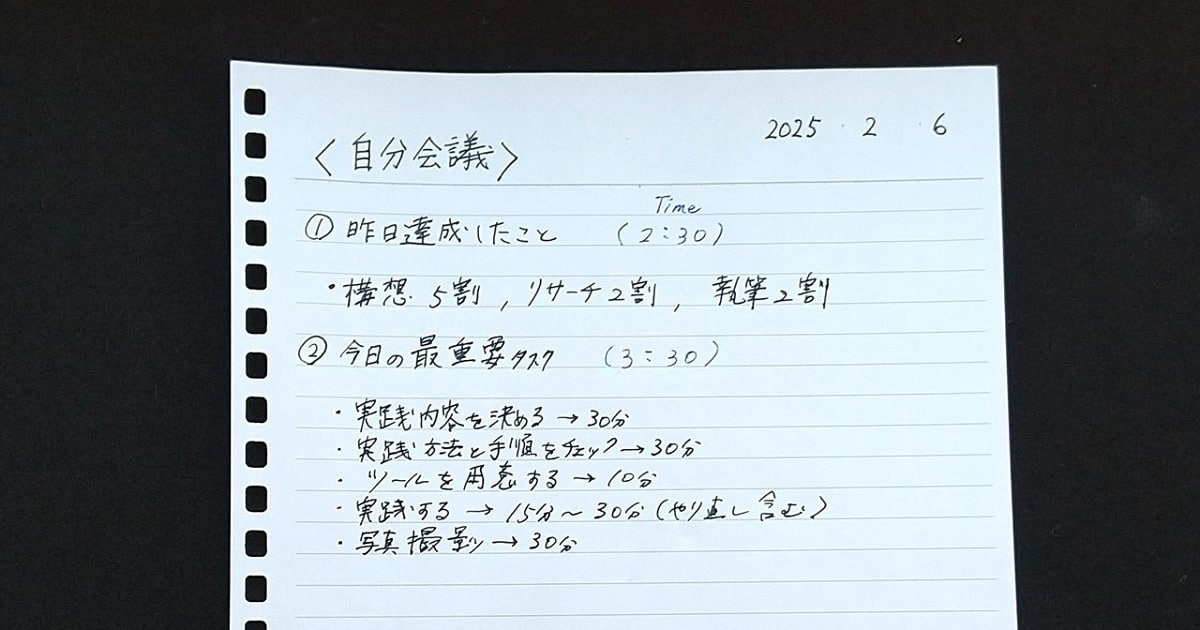 2025 . 2 . 6
〈自分会議〉
Time
① 昨日達成したこと (2:30)
・構想 5割 , リサーチ2割 , 執筆2割
② 今日の最重要タスク (3:30)
・実践内容を決める → 30分
・実践方法と手順をチェック → 30分
・ツールを用意する → 10分
・実践する → 15分〜30分 (やり直し含む)
・写真撮影 → 30分